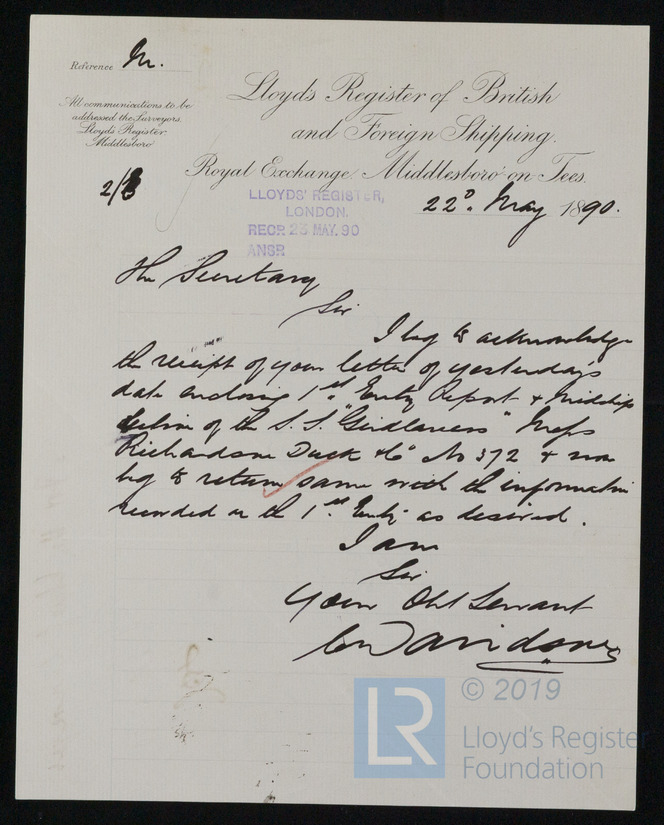 Reference M.
All communications to be
addressed the Surveyors.
Lloyd's Register
Middlesboro'
Lloyd's Register of British
and Foreign Shipping.
Royal Exchange, Middlesboro'-on-Tees.
LLOYDS' REGISTER,
LONDON.
RECD. 23 MAY. 90
ANSR
22d. May 1890.
The Secretary
Sir
I beg to acknowledge
the receipt of your letter of yesterday's
date enclosing 1st Entry Report & Midship
section of the S.S. "Girdleness" Messrs
Richardson Duck & Co No 372 & now
beg to return same with the information
recorded on the 1st Entry as desired.
I am
Sir
Your Obt Servant
Davidson
LR
© 2019
Lloyd's Register
Foundation